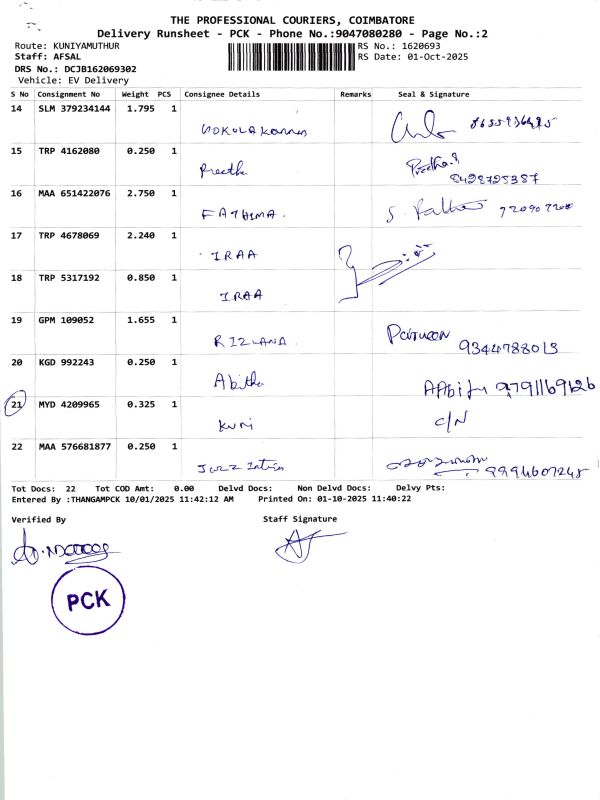 THE PROFESSIONAL COURIERS, COIMBATORE
Delivery Runsheet - PCK - Phone No.:9047080280 - Page No.:2
Route: KUNIYAMUTHUR
Staff: AFSAL
DRS No.: DCJB162069302
Vehicle: EV Delivery
RS No.: 1620693
RS Date: 01-Oct-2025
S No Consignment No Weight PCS Consignee Details Remarks Seal & Signature
14 SLM 379234144 1.795 1
15 TRP 4162080 0.250 1
Preetha
16 MAA 651422076 2.750 1
FATHIMA.
17 TRP 4678069 2.240 1
IRAA
18 TRP 5317192 0.850 1
IRAA
19 GPM 109052 1.655 1
RIZLANA. 9344788013
20 KGD 992243 0.250 1
Abitha 9791169126
21 MYD 4209965 0.325 1
C/N
22 MAA 576681877 0.250 1
9994607245
Tot Docs: 22 Tot COD Amt: 0.00 Delvd Docs: Non Delvd Docs: Delvy Pts:
Entered By :THANGAMPCK 10/01/2025 11:42:12 AM Printed On: 01-10-2025 11:40:22
Verified By Staff Signature
PCK